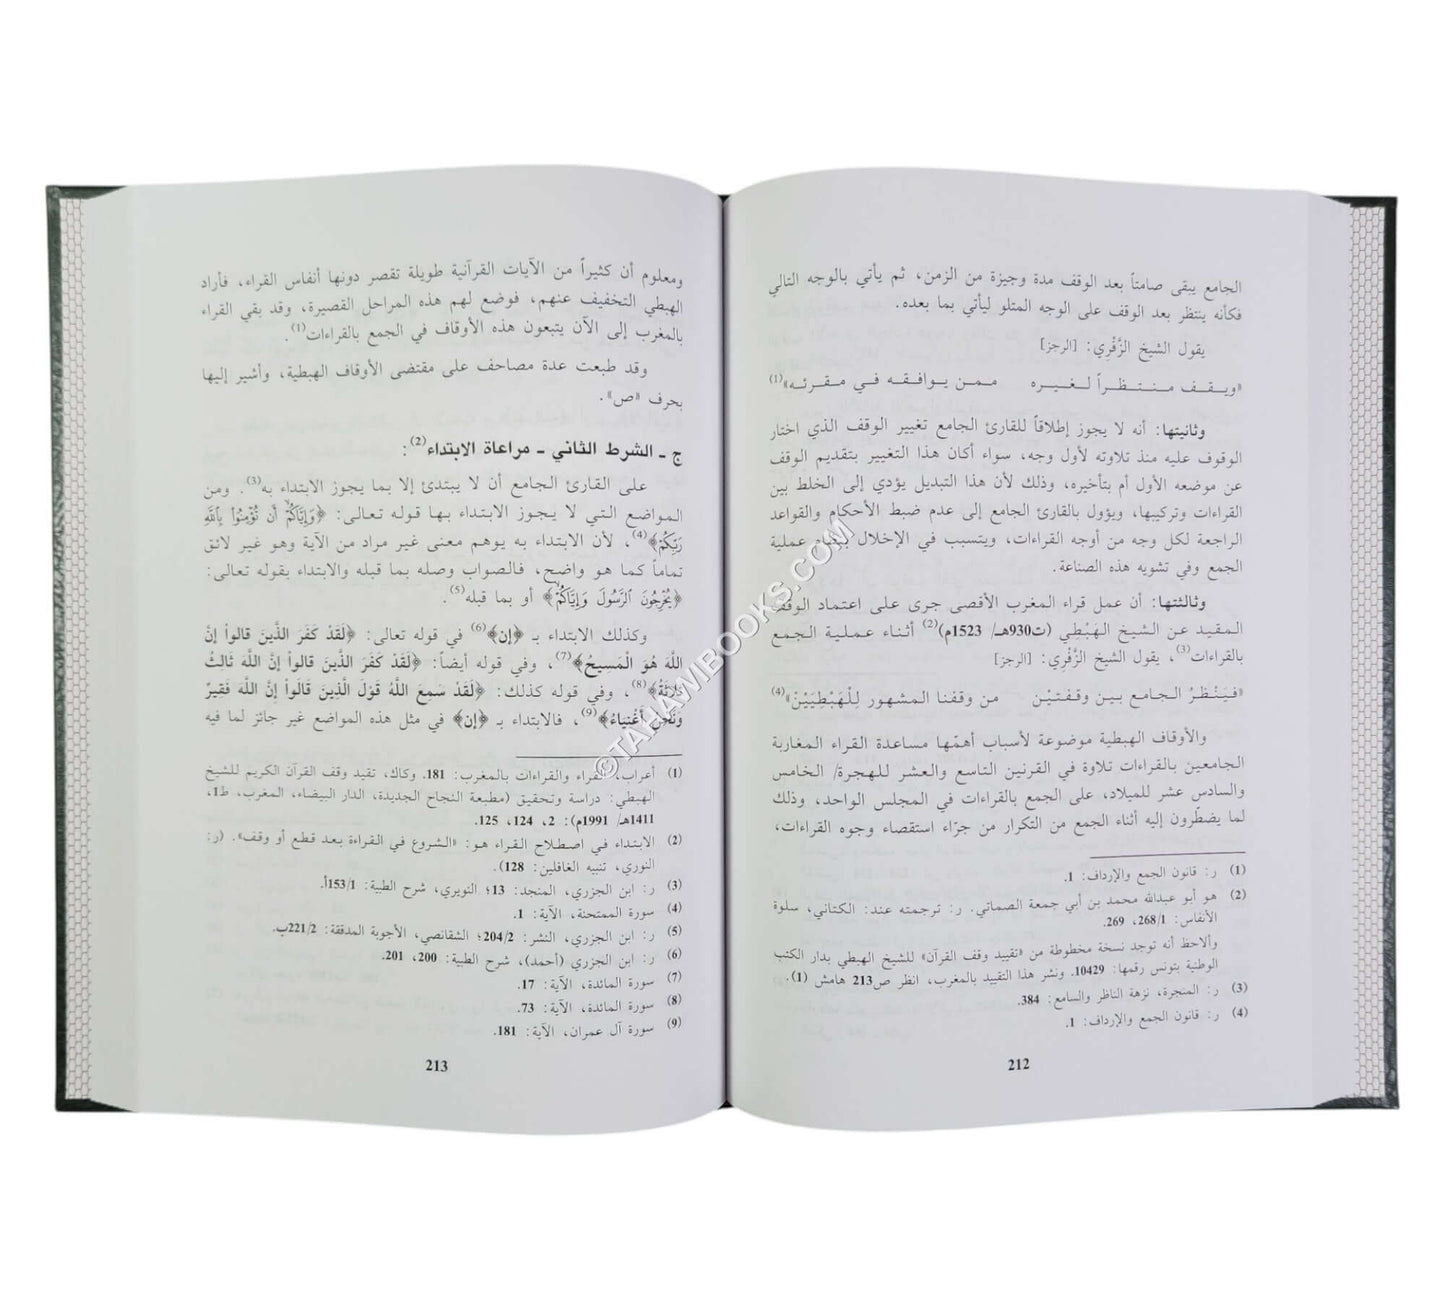 الجامع يبقى صامتاً بعد الوقف مدة وجيزة من الزمن، ثم يأتي بالوجه التالي
فكأنه ينتظر بعد الوقف على الوجه المتلو ليأتي بما بعده.
يقول الشيخ الزَّفْرِي: [الرجز]
«ويـقـف مـنـتـظـراً لـغـيـره مـمـن يـوافـقـه فـي مـقـرئـه»(1)
وثانيتها: أنه لا يجوز إطلاقاً للقارئ الجامع تغيير الوقف الذي اختار
الوقوف عليه منذ تلاوته لأول وجه، سواء أكان هذا التغيير بتقديم الوقف
عن موضعه الأول أم بتأخيره، وذلك لأن هذا التبديل يؤدي إلى الخلط بين
القراءات وتركيبها، ويؤول بالقارئ الجامع إلى عدم ضبط الأحكام والقواعد
الراجعة لكل وجه من أوجه القراءات، ويتسبب في الإخلال عملية
الجمع وفي تشويه هذه الصناعة.
وثالثتها: أن عمل قراء المغرب الأقصى جرى على اعتماد الوقف
المقيد عن الشيخ الهَبْطِي (ت930هـ/ 1523م)(2) أثناء عملية الجمع
بالقراءات(3)، يقول الشيخ الزَّفْرِي: [الرجز]
«فيَنْظُرُ الجامع بين وقفتيْن من وقفنا المشهور لِلْهَبْطِيَيْنْ»(4)
والأوقاف الهبطية موضوعة لأسباب أهمّها مساعدة القراء المغاربة
الجامعين بالقراءات تلاوة في القرنين التاسع والعشر للهجرة/ الخامس
والسادس عشر للميلاد، على الجمع بالقراءات في المجلس الواحد، وذلك
لما يضطرون إليه أثناء الجمع من التكرار من جرّاء استقصاء وجوه القراءات،
(1) ر: قانون الجمع والإرداف: 1.
(2) هو أبو عبدالله محمد بن أبي جمعة الصماتي. ر: ترجمته عند: الكتاني، سلوة
الأنفاس: 268/1، 269.
وألاحظ أنه توجد نسخة مخطوطة من «تقييد وقف القرآن» للشيخ الهبطي بدار الكتب
الوطنية بتونس رقمها: 10429. ونشر هذا التقييد بالمغرب، انظر ص213 هامش (1).
(3) ر: المنجرة، نزهة الناظر والسامع: 384.
(4) ر: قانون الجمع والإرداف: 1.
212
ومعلوم أن كثيراً من الآيات القرآنية طويلة تقصر دونها أنفاس القراء، فأراد
الهبطي التخفيف عنهم، فوضع لهم هذه المراحل القصيرة، وقد بقي القراء
بالمغرب إلى الآن يتبعون هذه الأوقاف في الجمع بالقراءات(1).
وقد طبعت عدة مصاحف على مقتضى الأوقاف الهبطية، وأشير إليها
بحرف «ص».
ج ـ الشرط الثاني ـ مراعاة الابتداء(2):
على القارئ الجامع أن لا يبتدئ إلا بما يجوز الابتداء به(3). ومن
المواضع التي لا يجوز الابتداء بها قوله تعالى: ﴿وَإِيَّاكُمْ أَن تُؤْمِنُوا بِاللَّهِ
رَبِّكُمْ﴾(4)، لأن الابتداء به يوهم معنى غير مراد من الآية وهو غير لائق
تماماً كما هو واضح، فالصواب وصله بما قبله والابتداء بقوله تعالى:
﴿يُخْرِجُونَ الرَّسُولَ وَإِيَّاكُمْ﴾ أو بما قبله(5).
وكذلك الابتداء بـ ﴿إن﴾(6) في قوله تعالى: ﴿لَقَدْ كَفَرَ الَّذِينَ قالوا إنَّ
اللَّهَ هُوَ الْمَسِيحُ﴾(7)، وفي قوله أيضاً: ﴿لَقَدْ كَفَرَ الَّذِينَ قَالُوا إنَّ اللَّهَ ثَالثُ
ثَلاثَةُ﴾(8)، وفي قوله كذلك: ﴿لَقَدْ سَمِعَ اللَّهُ قَوْلَ الَّذِينَ قَالُوا إنَّ اللَّهَ فَقِيرٌ
وَنَحْنُ أَغْنِيَاءُ﴾(9)، فالابتداء بـ ﴿إن﴾ في مثل هذه المواضع غير جائز لما فيه
(1) أعراب، القراء والقراءات بالمغرب: 181. وكاك، تقيد وقف القرآن الكريم للشيخ
الهبطي: دراسة وتحقيق (مطبعة النجاح الجديدة، الدار البيضاء، المغرب، ط1،
1411هـ/ 1991م): 2، 124، 125.
(2) الابتداء في اصطلاح القراء هو: «الشروع في القراءة بعد قطع أو وقف». (ر:
النوري، تنبيه الغافلين: 128).
(3) ر: ابن الجزري، المنجد: 13؛ النويري، شرح الطيبة: 153/1أ.
(4) سورة الممتحنة، الآية: 1.
(5) ر: ابن الجزري، النشر: 204/2؛ الشقانصي، الأجوبة المدققة: 221/2ب.
(6) ر: ابن الجزري (أحمد)، شرح الطيبة: 200، 201.
(7) سورة المائدة، الآية: 17.
(8) سورة المائدة، الآية: 73.
(9) سورة آل عمران، الآية: 181.
213
©TAHAWIBOOKS.COM